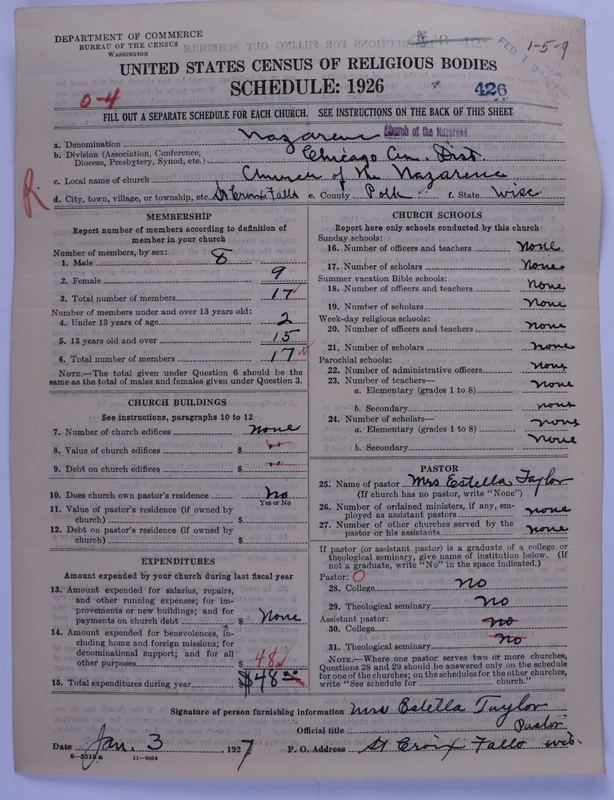 DEPARTMENT OF COMMERCE
BUREAU OF THE CENSUS
WASHINGTON
1-5-9
UNITED STATES CENSUS OF RELIGIOUS BODIES
SCHEDULE: 1926
0-4
426
FILL OUT A SEPARATE SCHEDULE FOR EACH CHURCH. SEE INSTRUCTIONS ON THE BACK OF THIS SHEET
a. Denomination Nazarene Church of the Nazarene
b. Division (Association, Conference, Diocese, Presbytery, Synod, etc.) Chicago Cen. Dist.
c. Local name of church Church of the Nazarene
d. City, town, village, or township, etc. St Croix Falls e. County Polk f. State Wisc.
R.
MEMBERSHIP
Report number of members according to definition of
member in your church
Number of members, by sex:
1. Male 8
2. Female 9
3. Total number of members 17
Number of members under and over 13 years old:
4. Under 13 years of age 2
5. 13 years old and over 15
6. Total number of members 17
NOTE.—The total given under Question 6 should be
same as the total of males and females given under Question 3.
CHURCH BUILDINGS
See instructions, paragraphs 10 to 12
7. Number of church edifices none
8. Value of church edifices $ "
9. Debt on church edifices $ "
10. Does church own pastor's residence No
Yes or No
11. Value of pastor's residence (if owned by
church) $
12. Debt on pastor's residence (if owned by
church) $
EXPENDITURES
Amount expended by your church during last fiscal year
13. Amount expended for salaries, repairs,
and other running expenses; for im-
provements or new buildings; and for
payments on church debt $ None
14. Amount expended for benevolences, in-
cluding home and foreign missions; for
denominational support; and for all
other purposes $ 48
15. Total expenditures during year $48
CHURCH SCHOOLS
Report here only schools conducted by this church
Sunday schools:
16. Number of officers and teachers none
17. Number of scholars None
Summer vacation Bible schools:
18. Number of officers and teachers none
19. Number of scholars none
Week-day religious schools:
20. Number of officers and teachers none
21. Number of scholars none
Parochial schools:
22. Number of administrative officers none
23. Number of teachers—
a. Elementary (grades 1 to 8) none
b. Secondary none
24. Number of scholars—
a. Elementary (grades 1 to 8) none
b. Secondary none
PASTOR
25. Name of pastor Mrs Estella Taylor
(If church has no pastor, write "None")
26. Number of ordained ministers, if any, em-
ployed as assistant pastors none
27. Number of other churches served by the
pastor or his assistants none
If pastor (or assistant pastor) is a graduate of a college or
theological seminary, give name of institution below. (If
not a graduate, write "No" in the space indicated.)
Pastor: O
28. College no
29. Theological seminary no
Assistant pastor:
30. College no
31. Theological seminary no
NOTE.—Where one pastor serves two or more churches,
Questions 28 and 29 should be answered only on the schedule
for one of the churches; on the schedules for the other churches,
write "See schedule for church."
Signature of person furnishing information Mrs Estella Taylor
Official title Pastor
Date Jan. 3 1927 P. O. Address St Croix Falls wis.
8-5518a 11-9054